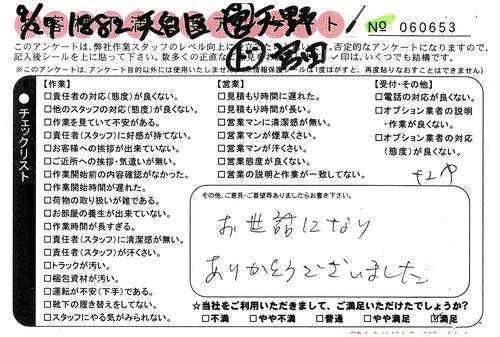 9/9 1882 天白区 営 天野
上の 宮田
No 060653
このアンケートは、弊社作業スタッフのレベル向上に
否定的なアンケートになりますので、
記入後シールを上に貼って下さい。数多くの正直な
印は、いくつでも結構です。
※このアンケートは、アンケート目的以外には使用いたしません。(個人情報保護シールは1度はがすと、再度貼りなおすことはできません)
チェックリスト
【作業】
□責任者の対応(態度)が良くない。
□他のスタッフの対応(態度)が良くない。
□作業を見ていて不安がある。
□責任者(スタッフ)に好感が持てない。
□お客様への挨拶が出来ていない。
□ご近所への挨拶・気遣いが無い。
□作業開始前の内容確認がなかった。
□作業開始時間が遅れた。
□荷物の取り扱いが雑である。
□お部屋の養生が出来ていない。
□作業時間が長すぎる。
□責任者(スタッフ)に清潔感が無い。
□責任者(スタッフ)が汗くさい。
□トラックが汚い。
□梱包資材が汚い。
□運転が不安(下手)である。
□靴下の履き替えをしてない。
□スタッフにやる気がみられない。
【営業】
□見積もり時間に遅れた。
□見積もり時間が長い。
□営業マンに清潔感が無い。
□営業マンが煙草くさい。
□営業マンが汗くさい。
□営業態度が良くない。
□営業の説明と作業が一致してない。
【受付・その他】
□電話の対応が良くない。
□オプション業者の説明
・作業が良くない。
□オプション業者の対応
(態度)が良くない。
その他、ご意見・ご要望等ありましたらお書き下さい。
お世話になり
ありがとうございました
☆当社をご利用いただきまして、ご満足いただけたでしょうか?
□不満 □やや不満 □普通 □やや満足 □満足